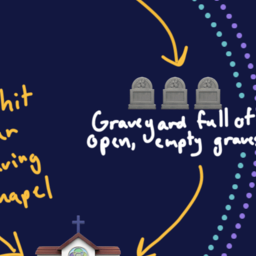 hit
aving
hapel
Graveyard full of
open, empty graves